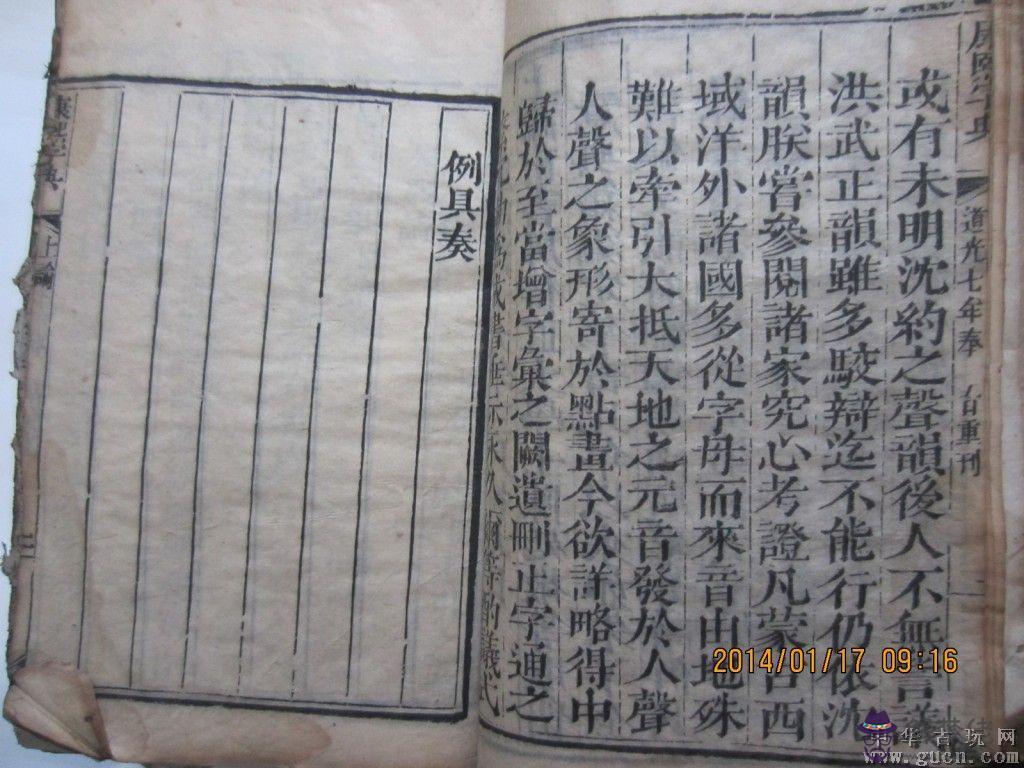 道光七年奉 旨重刊
或有未明沈約之聲韻後人不無言議
洪武正韻雖多駁辯迄不能行仍依沈
韻朕嘗參閱諸家究心考證凡蒙古西
域洋外諸國多從字母而來音由地殊
難以牽引大抵天地之元音發於人聲
人聲之象形寄於點畫今欲詳略得中
歸於至當增字彙之闕遺刪
止字通之
爾等酌議式
例具奏
康熙字典
上諭
2014/01/17 09:16
華古玩网
www.gucn.com